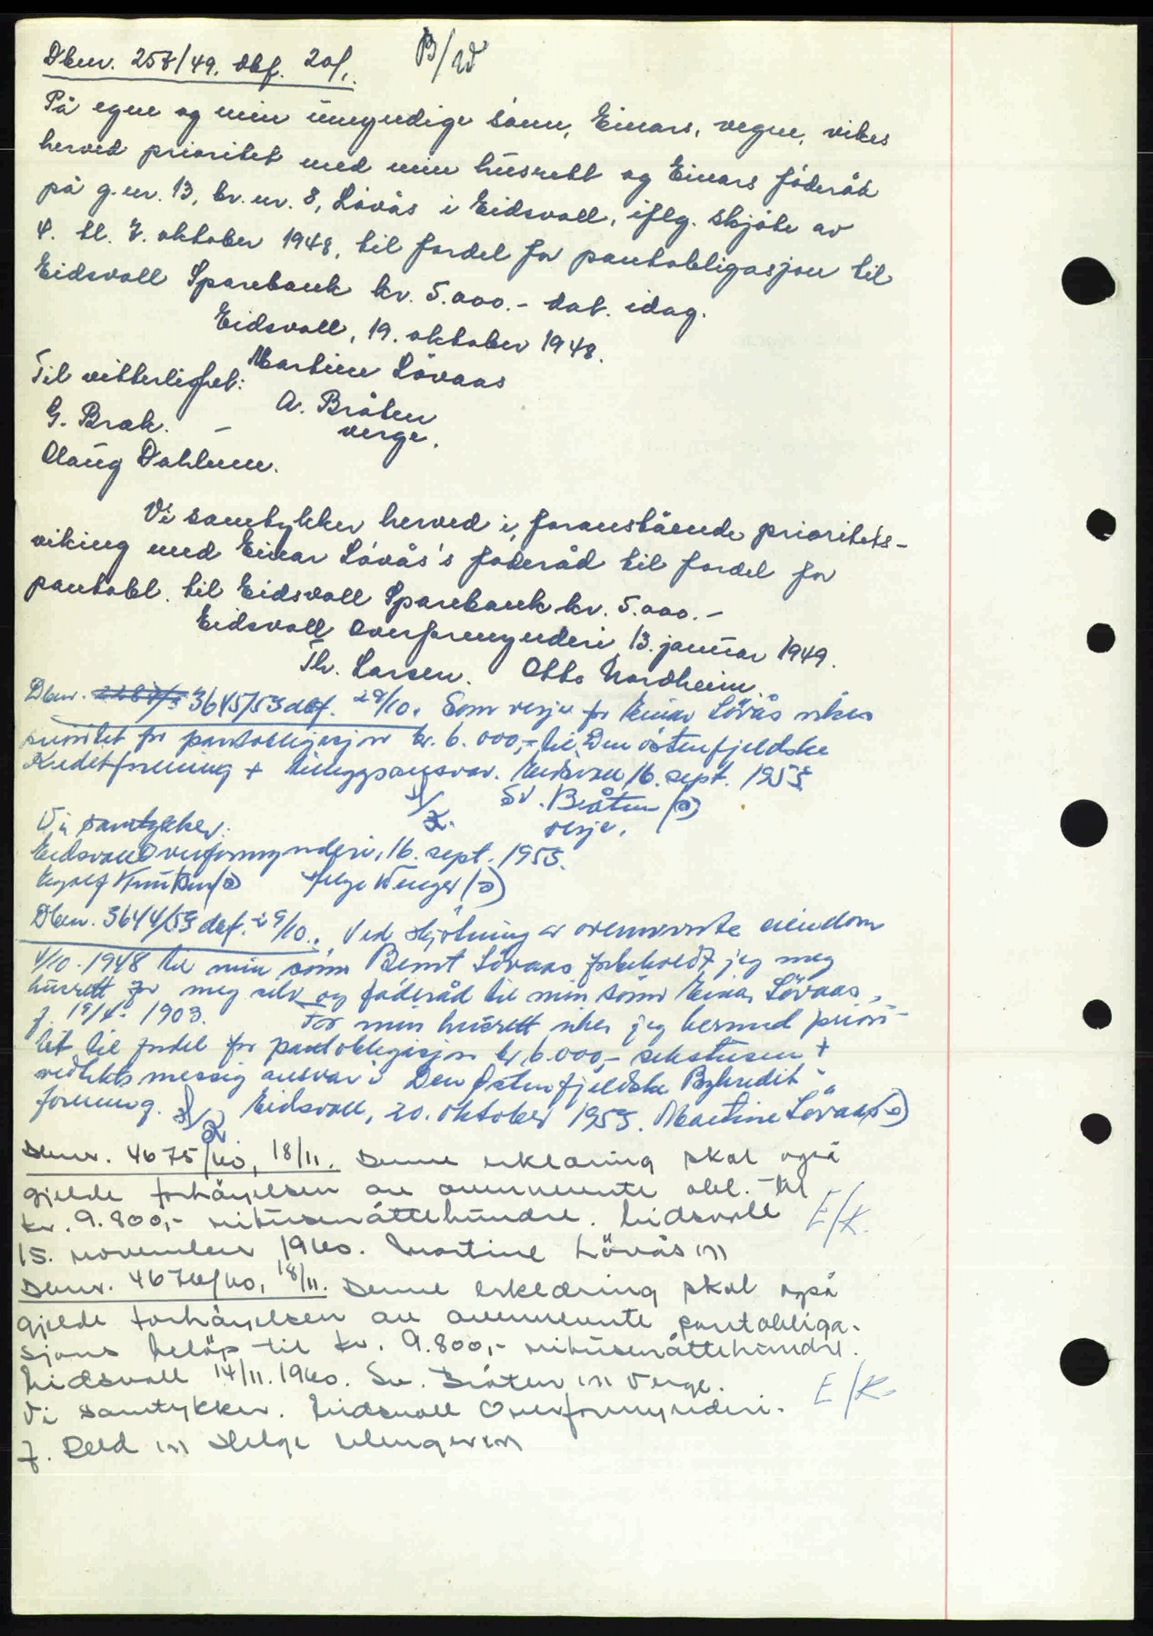 Dbnr. 257/49. dbf. 20/1. B/W
På egne og min umyndige sønn, Einars, vegne, vikes
herved prioritet med min husrett og Einars föderåd
på g.nr. 13, br.nr. 8, Lövås i Eidsvoll, iflg. skjöte av
4. tl. 7. oktober 1948, til fordel for pantobligasjon til
Eidsvoll Sparebank kr. 5.000.- dat. idag.
Eidsvoll, 19. oktober 1948.
Martine Lövaas
Til vitterlighet:
A. Bråten
G. Bræk. - verge.
Olaug Dahlum.
Vi samtykker herved i foranstående prioritets-
viking med Einar Lövås's föderåd til fordel for
pantobl. til Eidsvoll Sparebank kr. 5.000.-
Eidsvoll Overformynderi 13. januar 1949.
Th. Larsen. Otto Nordheim.
Dbnr. 3645/53 dbf. 29/10. Som verje for Einar Lövås vikes
prioritet for pantobligasjon kr. 6.000,- til Den östenfjeldske
Kreditforening + tilleggsansvar. Eidsvoll 16. sept. 1953
Sv. Bråten (s)
verje.
Vi samtykker:
Eidsvoll Overformynderi, 16. sept. 1953.
Helge Wenger (s)
Dbnr. 3644/53 dbf. 29/10. Ved skjötning av ovennevnte eiendom
4/10.1948 til min sönn Bernt Lövaas forbeholdt jeg meg
husrett for meg selv og föderåd til min sönn Einar Lövaas,
f. 19/4. 1903. For min husrett viker jeg hermed priori-
tet til fordel for pantobligasjon kr. 6.000,- sekstusen +
vedtektsmessig ansvar i Den Östenfjeldske Bykredit-
forening. Eidsvoll, 20. oktober 1953. Martine Lövaas (s)
Dbnr. 4675/60, 18/11. Denne erklæring skal også
gjelde forhöyelsen av ovennevnte obl. til
kr. 9.800,- nitusenåttehundre. Eidsvoll E/K.
15. november 1960. Martine Lövås (s)
Dbnr. 4676/60, 18/11. Denne erklæring skal også
gjelde forhöyelsen av ovennevnte pantobliga-
sjons belöp til kr. 9.800,- nitusenåttehundre.
Eidsvoll 14/11.1960. Sv. Bråten (s) verge.
E/K
Vi samtykker. Eidsvoll Overformynderi.
Helge Wenger (s)